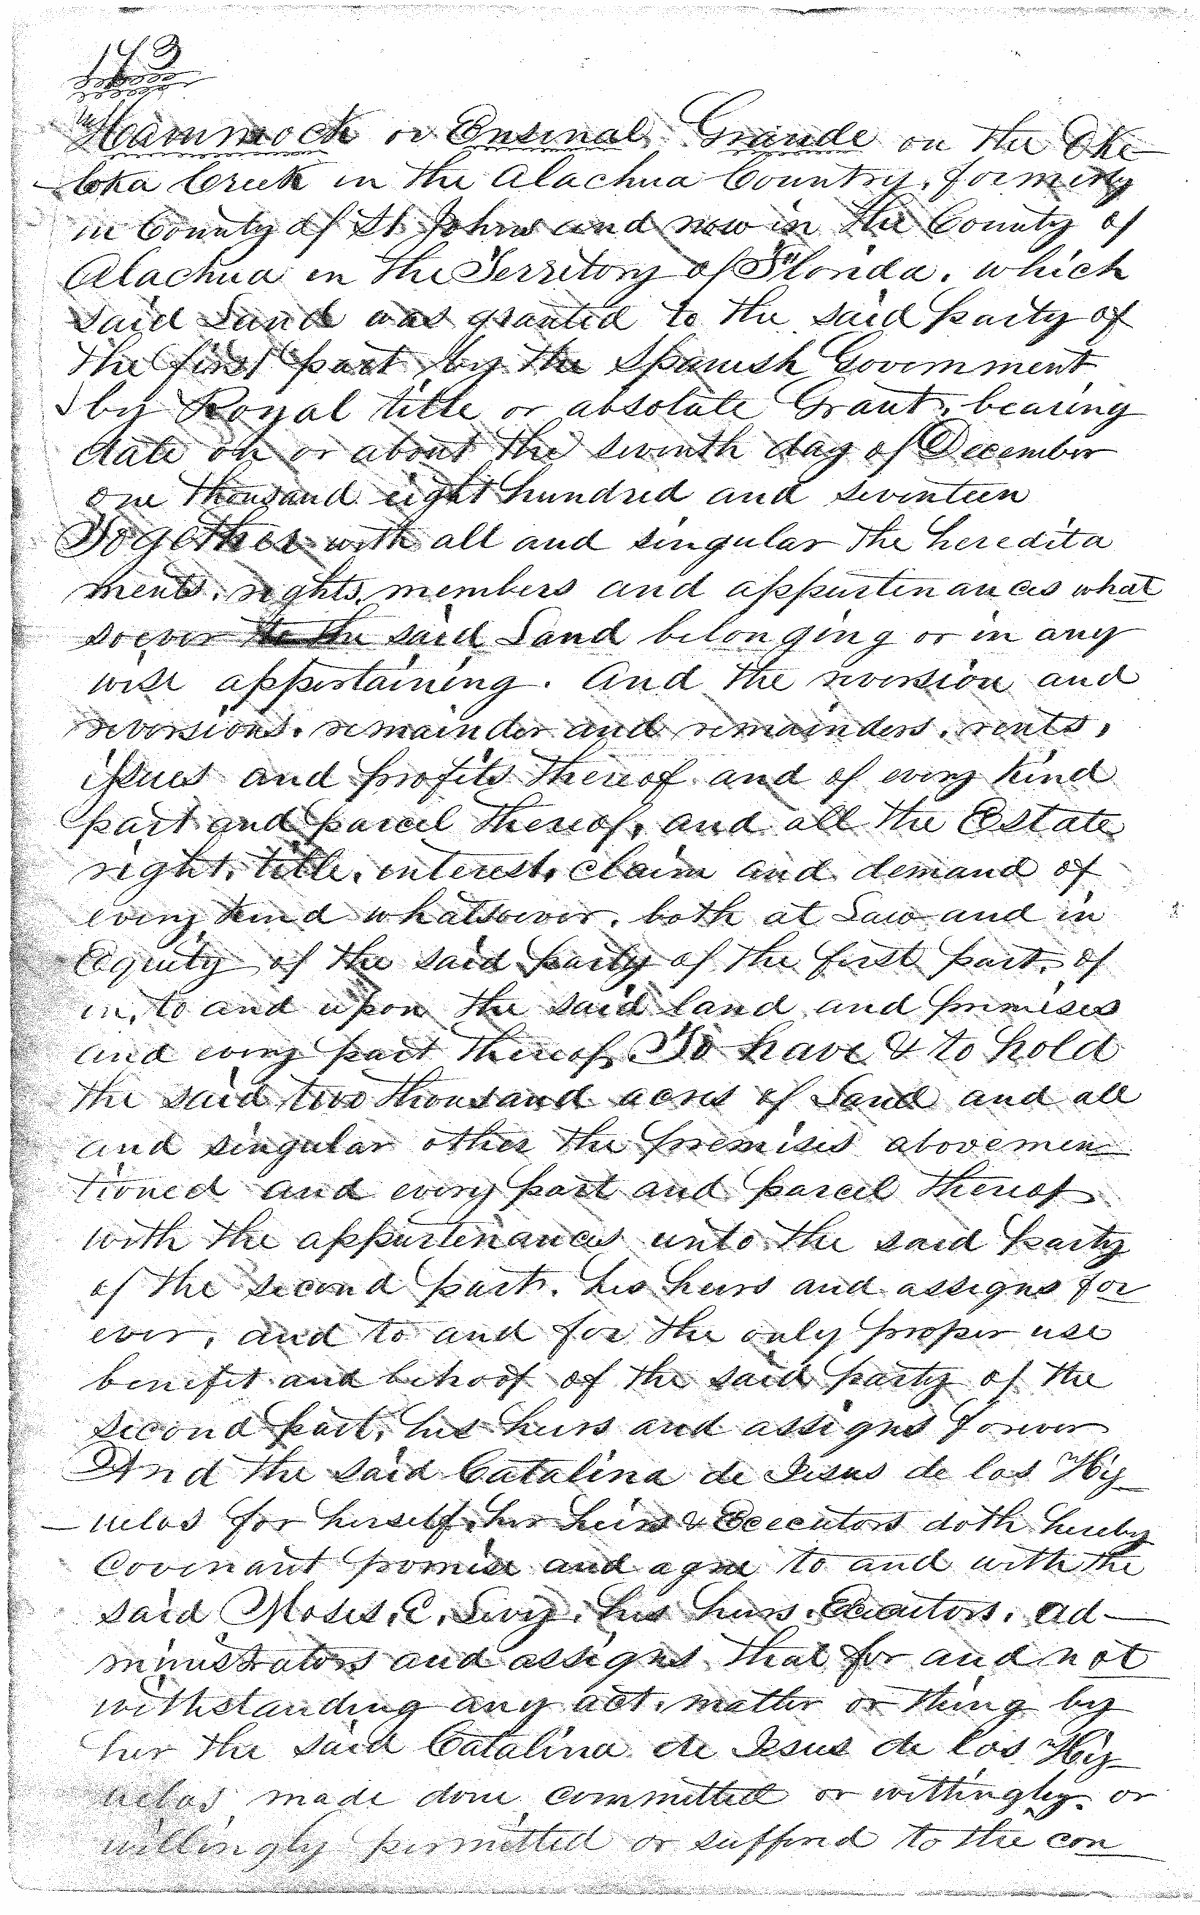 173
Hammock or Ensinal Grande on the Oke-
-loka Creek in the Alachua Country, formerly
in County of St Johns and now in the County of
Alachua in the Territory of Florida, which
said Land was granted to the said party of
the first part by the Spanish Government
by Royal title or absolute Grant, bearing
date on or about the seventh day of December
one thousand eight hundred and seventeen
Together with all and singular the heredita
ments, rights, members and appurtenances what
soever to the said Land belonging or in any
wise appertaining. And the reversion and
reversions, remainder and remainders, rents,
issues and profits thereof and of every kind
part and parcel thereof, and all the Estate
right, title, interest, claim and demand of
every kind whatsoever, both at Law and in
Equity of the said party of the first part, of
in, to and upon the said land and premises
and every part thereof, To have & to hold
the said two thousand acres of Land and all
and singular other the premises abovemen-
tioned and every part and parcel thereof
with the appurtenances unto the said party
of the second part, his heirs and assigns for
ever, and to and for the only proper use
benefit and behoof of the said party of the
second part, his heirs and assigns forever
And the said Catalina de Jesus de los Hij-
-uelos for herself, her heirs & Executors doth hereby
Covenant promise and agree to and with the
said Moses, E, Levy, his heirs, Executors, ad-
ministrators and assigns that for and not
withstanding any act, matter or thing by
her the said Catalina de Jesus de los Hij-
uelos made done committed or wittingly or
willingly permitted or suffered to the con